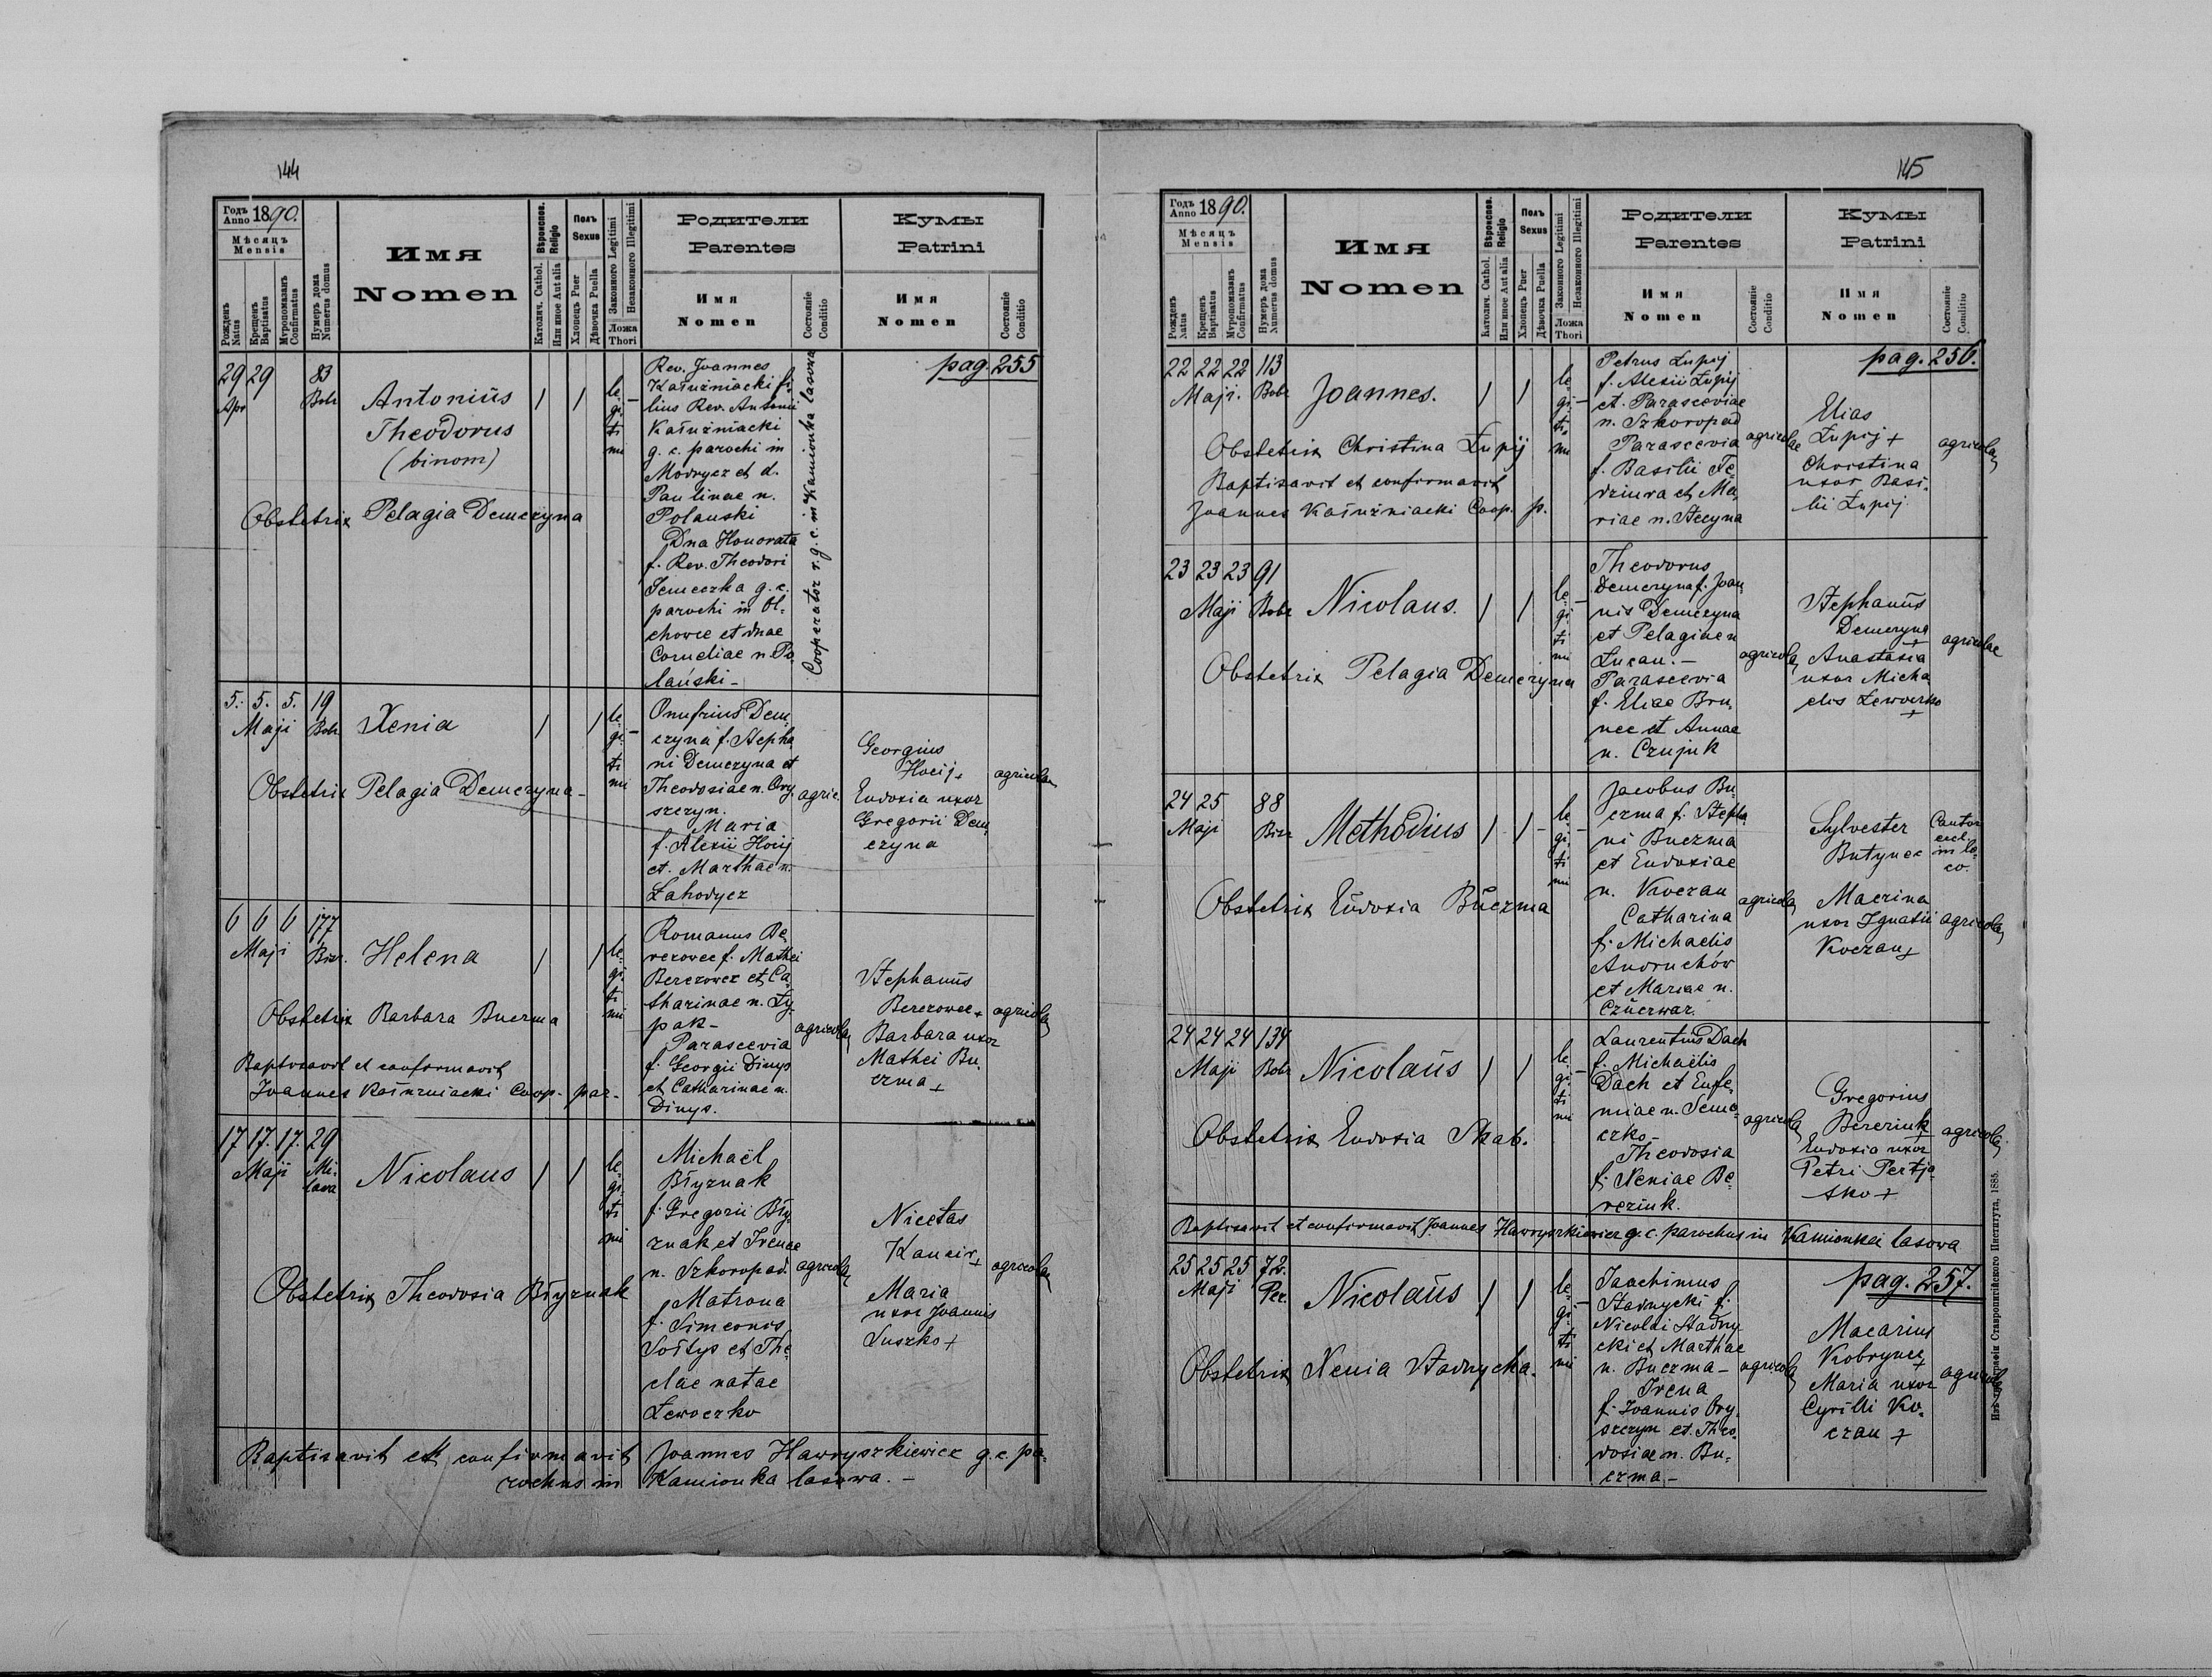 144
Годъ
Anno 1890.
Мѣсяцъ
Mensis
Рожденъ
Natus
Крещенъ
Baptisatus
Мѵропомазанъ
Confirmatus
Нумеръ дома
Numerus domus
Имя
Nomen
Вѣроиспов.
Religio
Католич. Cathol.
Или иное Aut alia
Полъ
Sexus
Хлопецъ Puer
Дѣвочка Puella
Законного Legitimi
Незаконного Illegitimi
Ложа
Thori
Родители
Parentes
Имя
Nomen
Состояніе
Conditio
Кумы
Patrini
Имя
Nomen
Состояніе
Conditio
pag. 255
29 29 83
Apr Bobr
Antonius
Theodorus
(binom)
Obstetrix Pelagia Demczyna
le
gi
ti
mi
Rev. Joannes
Kałużniacki fi
lius Rev. Antonii
Kałużniacki
g. c. parochi in
Modrycz et d.
Paulinae n.
Polanski
Dna Honorata
f. Rev. Theodori
Jemeczka g. c.
parochi in Ol-
chowce et dnae
Corneliae n. Po
lański -
Cooperator r. g. c. in Kamionka lasowa
5. 5. 5. 19
Maji Bobr
Xenia
Obstetrix Pelagia Demczyna -
le
gi
ti
mi
Onufrius Dem
czyna f. Stepha
ni Demczyna et
Theodosiae n. Ory
szczyn.
Maria
f. Alexii Hocij
et. Marthae n.
Łahodycz
agric.
Georgius
Hocij +
Eudoxia uxor
Gregorii Dem
czyna
agricolae
6 6 6 177
Maji
Helena
Obstetrix Barbara Buczma
Baptisavit et confirmavit
Joannes Kałużniacki Coop. par.
le
gi
ti
mi
Romanus Be
rezowec f. Mathei
Berezowez et Ca
tharinae n. Ły
pak -
Parascevia
f. Georgii Dinys
et Catharinae n.
Dinys.
agricolae
Stephanus
Berezowec +
Barbara uxor
Mathei Bu
czma +
agricolae
17 17. 17. 29
Maji
Nicolaus
Obstetrix Theodosia Błyznak
le
gi
ti
mi
Michaël
Błyznak
f. Gregorii Bły
znak et Irenae
n. Szkoropad.
Matrona
f. Simeonis
Sołtys et The
clae natae
Lewoczko
agricolae
Nicetas
Kancir +
Maria
uxor Joannis
Suszko +
agricolae
Baptisavit et confirmavit Joannes Hawryszkiewicz g. c. pa-
rochus in Kamionka lasowa. -
145
Годъ
Anno 1890.
Мѣсяцъ
Mensis
Рожденъ
Natus
Крещенъ
Baptisatus
Мѵропомазанъ
Confirmatus
Нумеръ дома
Numerus domus
Имя
Nomen
Вѣроиспов.
Religio
Католич. Cathol.
Или иное Aut alia
Полъ
Sexus
Хлопецъ Puer
Дѣвочка Puella
Законного Legitimi
Незаконного Illegitimi
Ложа
Thori
Родители
Parentes
Имя
Nomen
Состояніе
Conditio
Кумы
Patrini
Имя
Nomen
Состояніе
Conditio
pag. 256.
22 22 22 113
Maji. Bobr
Joannes.
Obstetrix Christina Łupij
Baptisavit et confirmavit
Joannes Kałużniacki Coop. p.
le
gi
ti
mi
Petrus Łupij
f. Alexii Łupij
et. Parasceviae
n. Szkoropad
Parascevia
f. Basilii Fe
dziura et Ma
riae n. Stecyna
agricolae
Elias
Łupij +
Christina
uxor Basi
lii Łupij
agricolae
23 23 23 91
Maji Bobr
Nicolaus.
Obstetrix Pelagia Demczyna
le
gi
ti
mi
Theodorus
Demczyna f. Joan
nis Demczyna
et Pelagiae n
Łucan. -
Parascevia
f. Eliae Bru
nec et Annae
n. Czujuk
agricolae
Stephanus
Demczyna
Anastasia
uxor Micha
elis Lewoczko
+
agricolae
24 25 88
Maji
Methodius
Obstetrix Eudoxia Buczma
le
gi
ti
mi
Jacobus Bu
czma f. Stepha
ni Buczma
et Eudoxiae
n. Koczan
Catharina
f. Michaelis
Andruchów
et Mariae n.
agricolae
Sylvester
Butynec
Cantor
eccl.
in lo
co.
Macrina
uxor Ignatii
Koczan +
agricolae
24 24 24 134
Maji Bobr
Nicolaus
Obstetrix Eudoxia Skab.
le
gi
ti
mi
Laurentius Dach
f. Michaëlis
Dach et Eufe
miae n. Seme
czko -
Theodosia
f. Xeniae Be
reziuk.
agricolae
Gregorius
Bereziuk
+
Eudoxia uxor
Petri Pertja
sko +
agricolae
Baptisavit et confirmavit Joannes Hawryszkiewicz g. c. parochus in Kamionka lasowa
pag. 257.
25 25 25 72.
Maji
Nicolaus
Obstetrix Xenia Stadnycka.
le
gi
ti
mi
Joachimus
Stadnycki f.
Nicolai Stadny
cki et Marthae
n. Buczma -
Irena
f. Joannis Ory
szczyn et. Theo
dosiae n. Bu
czma -
agricolae
Macarius
Kobrynec
+
Maria uxor
Cyrilli Ko
czan +
agricolae
Ставропигійского Института, 1885.